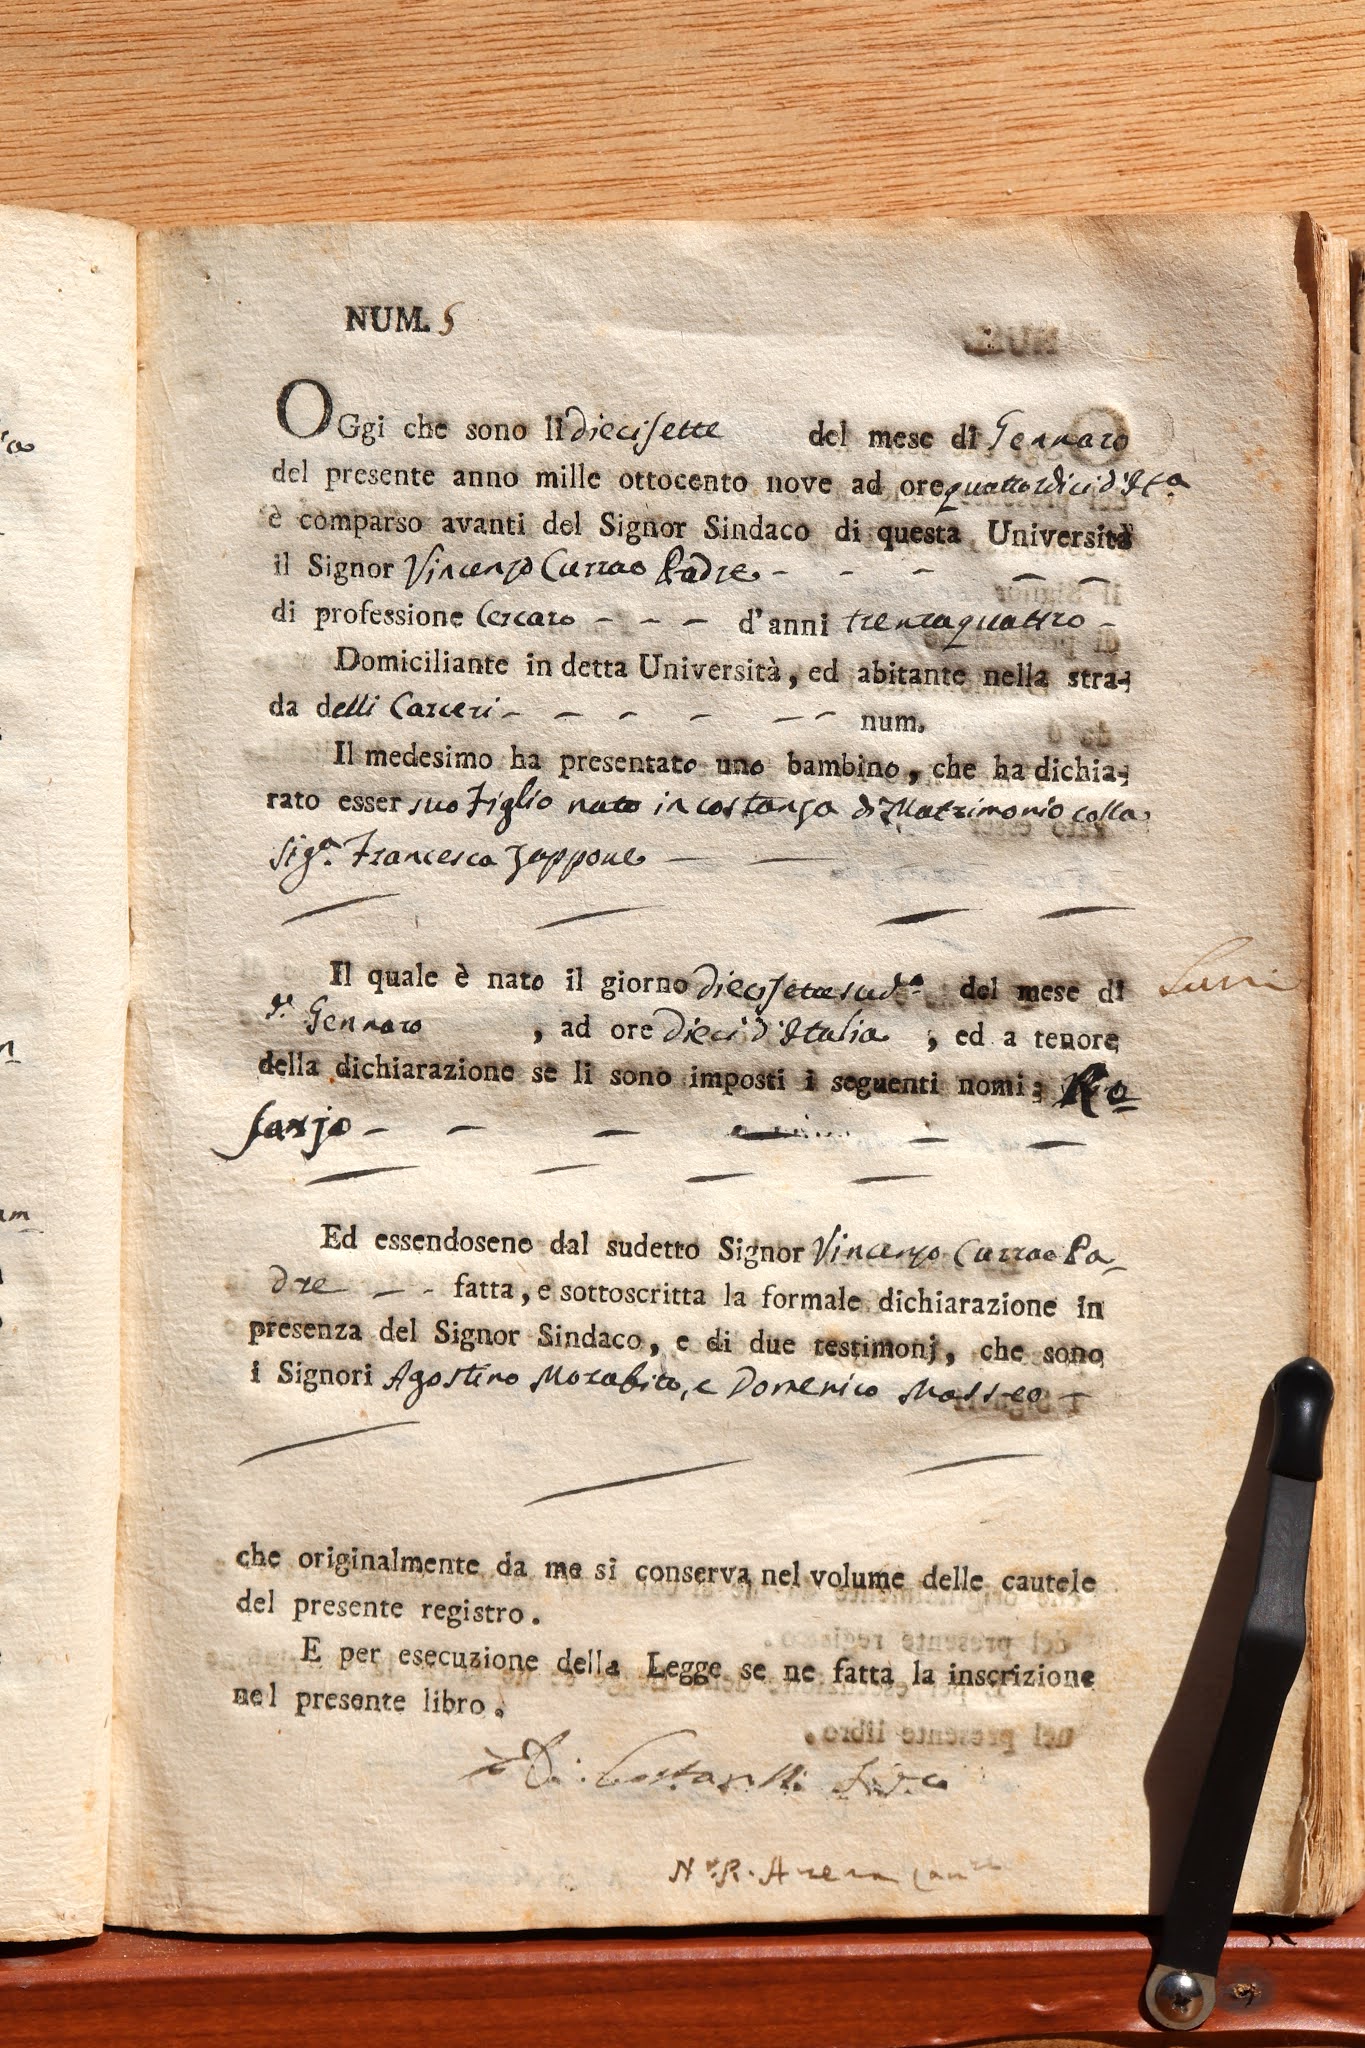 NUM. 5
OGgi che sono li diecisette del mese di Gennaro
del presente anno mille ottocento nove ad ore quattordici d'Ita
è comparso avanti del Signor Sindaco di questa Università
il Signor Vincenzo Currao Padre - - - - -
di professione Cercaro - - - d'anni trentaquattro -
Domiciliante in detta Università, ed abitante nella stra-
da delli Carceri - - - - - - num.
Il medesimo ha presentato uno bambino, che ha dichia-
rato esser suo Figlio nato in costanza di Matrimonio colla
Sig.a Francesca Zappone
Il quale è nato il giorno diecisette sud.o del mese di
d.o Gennaro , ad ore dieci d'Italia , ed a tenore
della dichiarazione se li sono imposti i seguenti nomi; Ro-
Ed essendosene dal sudetto Signor Vincenzo Currao Pa-
dre - - fatta, e sottoscritta la formale dichiarazione in
presenza del Signor Sindaco, e di due testimonj, che sono
i Signori Agostino Morabito, e Domenico Masseo -
che originalmente da me si conserva nel volume delle cautele
del presente registro.
E per esecuzione della Legge se ne fatta la inscrizione
nel presente libro.
Arena